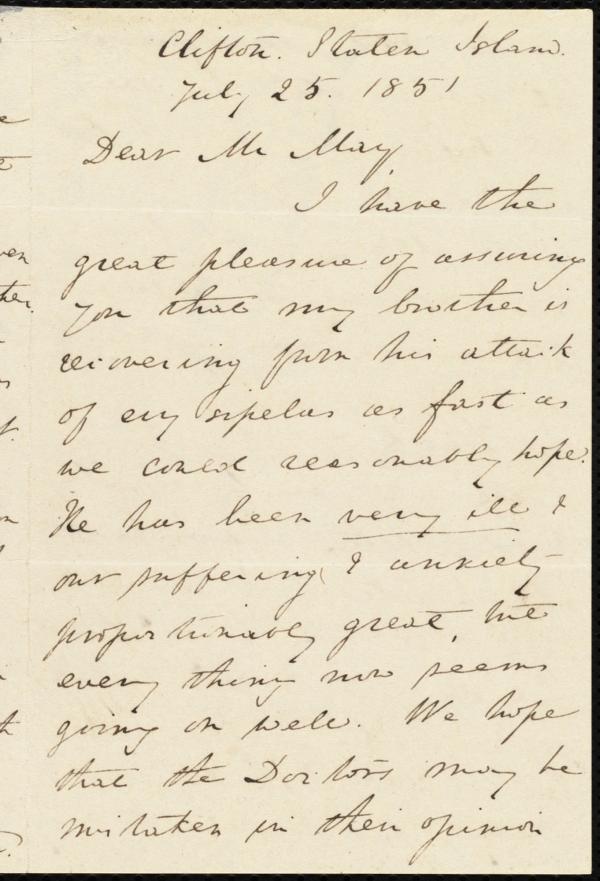 Clifton. Staten Island.
July 25. 1851
Dear Mr May
I have the
great pleasure of assuring
you that my brother is
recovering from his attack
of erysipelas as fast as
we could reasonably hope.
He has been very ill &
our suffering & anxiety
proportionably great, but
every thing now seems
going on well. We hope
that the Doctors may be
mistaken in their opinion